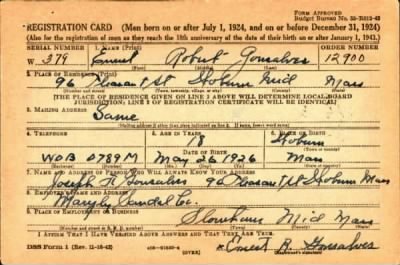 FORM APPROVED
Budget Bureau No. 33-R012-42
REGISTRATION CARD (Men born on or after July 1, 1924, and on or before December 31, 1924)
(Also for the registration of men as they reach the 18th anniversary of the date of their birth on or after January 1, 1943.)
SERIAL NUMBER 1. NAME (Print) ORDER NUMBER
W 379 Ernest Robert Gonsalves 12900
(First) (Middle) (Last)
2. PLACE OF RESIDENCE (Print)
96 Pleasant St Woburn Mid Mass
(Number and street) (Town, township, village, or city) (County) (State)
[THE PLACE OF RESIDENCE GIVEN ON LINE 2 ABOVE WILL DETERMINE LOCAL BOARD
JURISDICTION; LINE 2 OF REGISTRATION CERTIFICATE WILL BE IDENTICAL]
3. MAILING ADDRESS
Same
[Mailing address if other than place indicated on line 2. If same, insert word same]
4. TELEPHONE 5. AGE IN YEARS 6. PLACE OF BIRTH
18 Woburn
DATE OF BIRTH
WOB 0789M May 26 1926 Mass
(Exchange) (Number) (Mo.) (Day) (Yr.) (State or country)
7. NAME AND ADDRESS OF PERSON WHO WILL ALWAYS KNOW YOUR ADDRESS
Joseph H. Gonsalves 96 Pleasant St Woburn Mass
8. EMPLOYER'S NAME AND ADDRESS
Sandal Co.
9. PLACE OF EMPLOYMENT OR BUSINESS
Stoneham Mid Mass
(Number and street or R. F. D. number) (Town) (County) (State)
I AFFIRM THAT I HAVE VERIFIED ABOVE ANSWERS AND THAT THEY ARE TRUE.
DSS Form 1 (Rev. 11-16-42) (OVER) Ernest R. Gonsalves
(Registrant's signature)